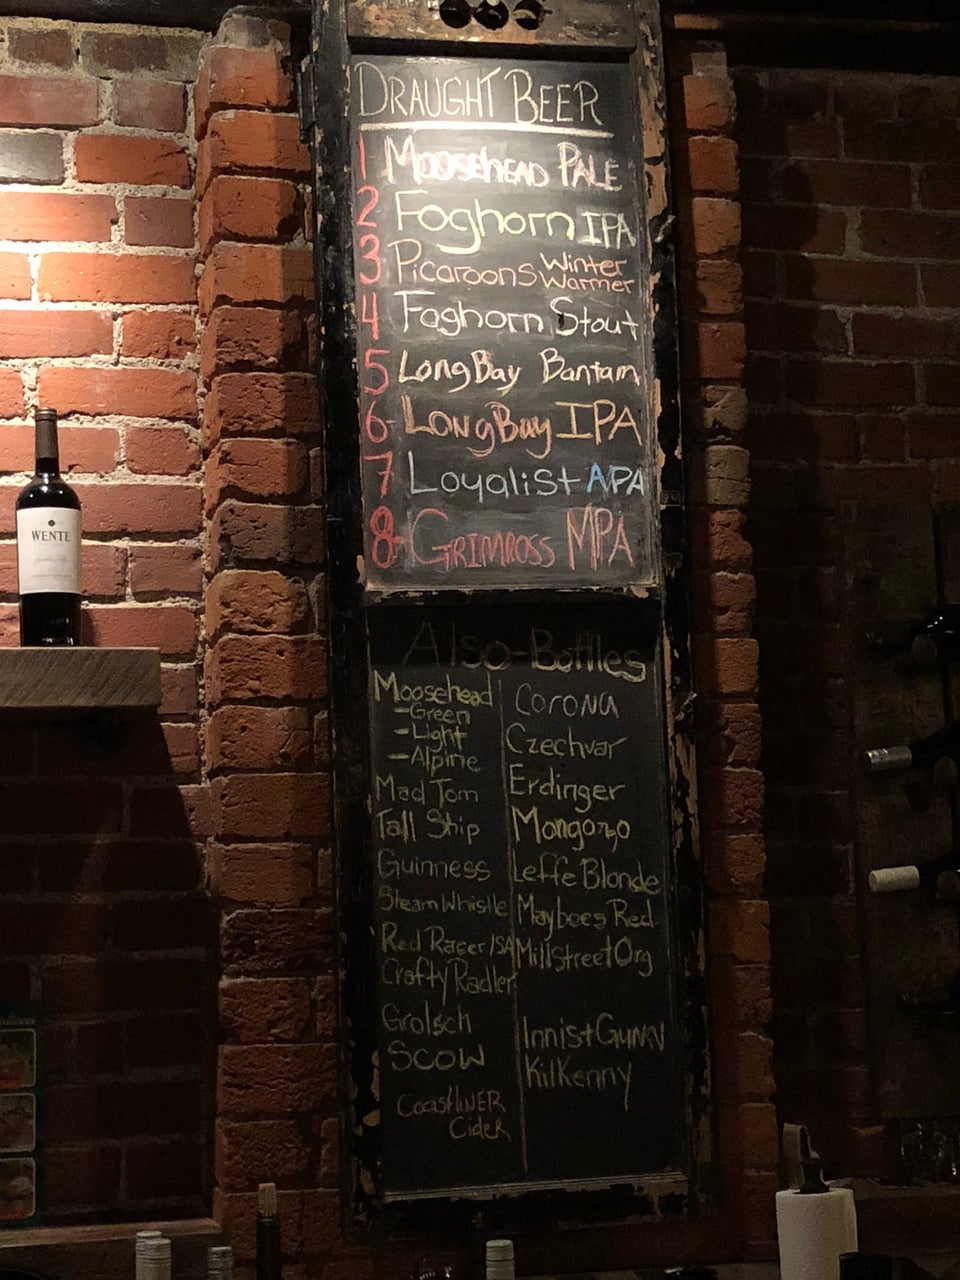 DRAUGHT BEER
1 Moosehead PALE
2 Foghorn IPA
3 Picaroons Winter Warmer
4 Foghorn Stout
5 LongBay Bantam
6 LongBay IPA
7 Loyalist APA
8- GRIMROSS MPA
WENTE
Also-Bottles
Moosehead
-Green
-Light
-Alpine
Mad Tom
Tall Ship
Guinness
SteamWhistle
Red Racer ISA
Crafty Radler
Grolsch
SCOW
COASTLINER
Cider
Corona
Czechvar
Erdinger
Mongozo
Leffe Blonde
Maybees Red
MillstreetOrg
Innis+Gunn
Kilkenny